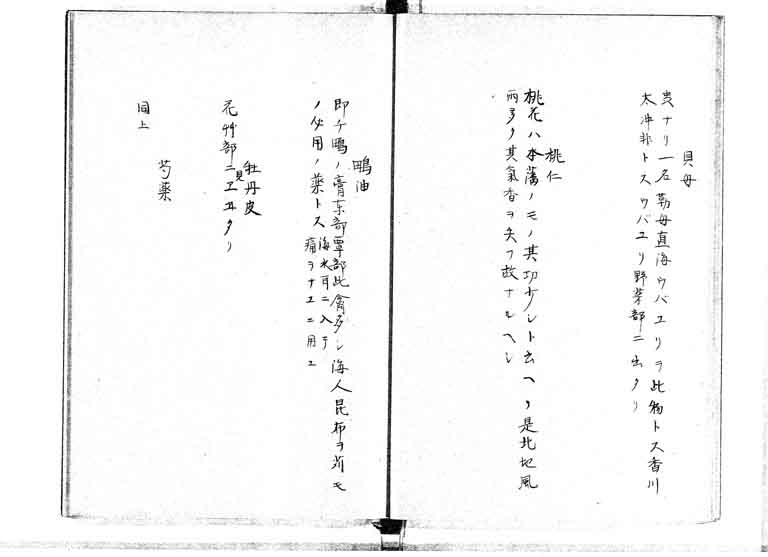 貝母
ナリ一名勤母直海ウバユリヲ此物トス香川
太冲非トスウバユリ野菜部ニ出タリ
桃仁
桃花ハ本藩ノモノ其功少シト云ヘリ是北地風
雨多ク其氣香ヲ失フ故ナルヘシ
鴨油
即チ鴨ノ膏東部覃部此禽多シ海人昆布ヲ苅モ
ノ必用ノ薬トス海水耳ニ入テ
痛ヲナスニ用ユ
牡丹皮
花艸部ニ見エタリ
芍薬
同上